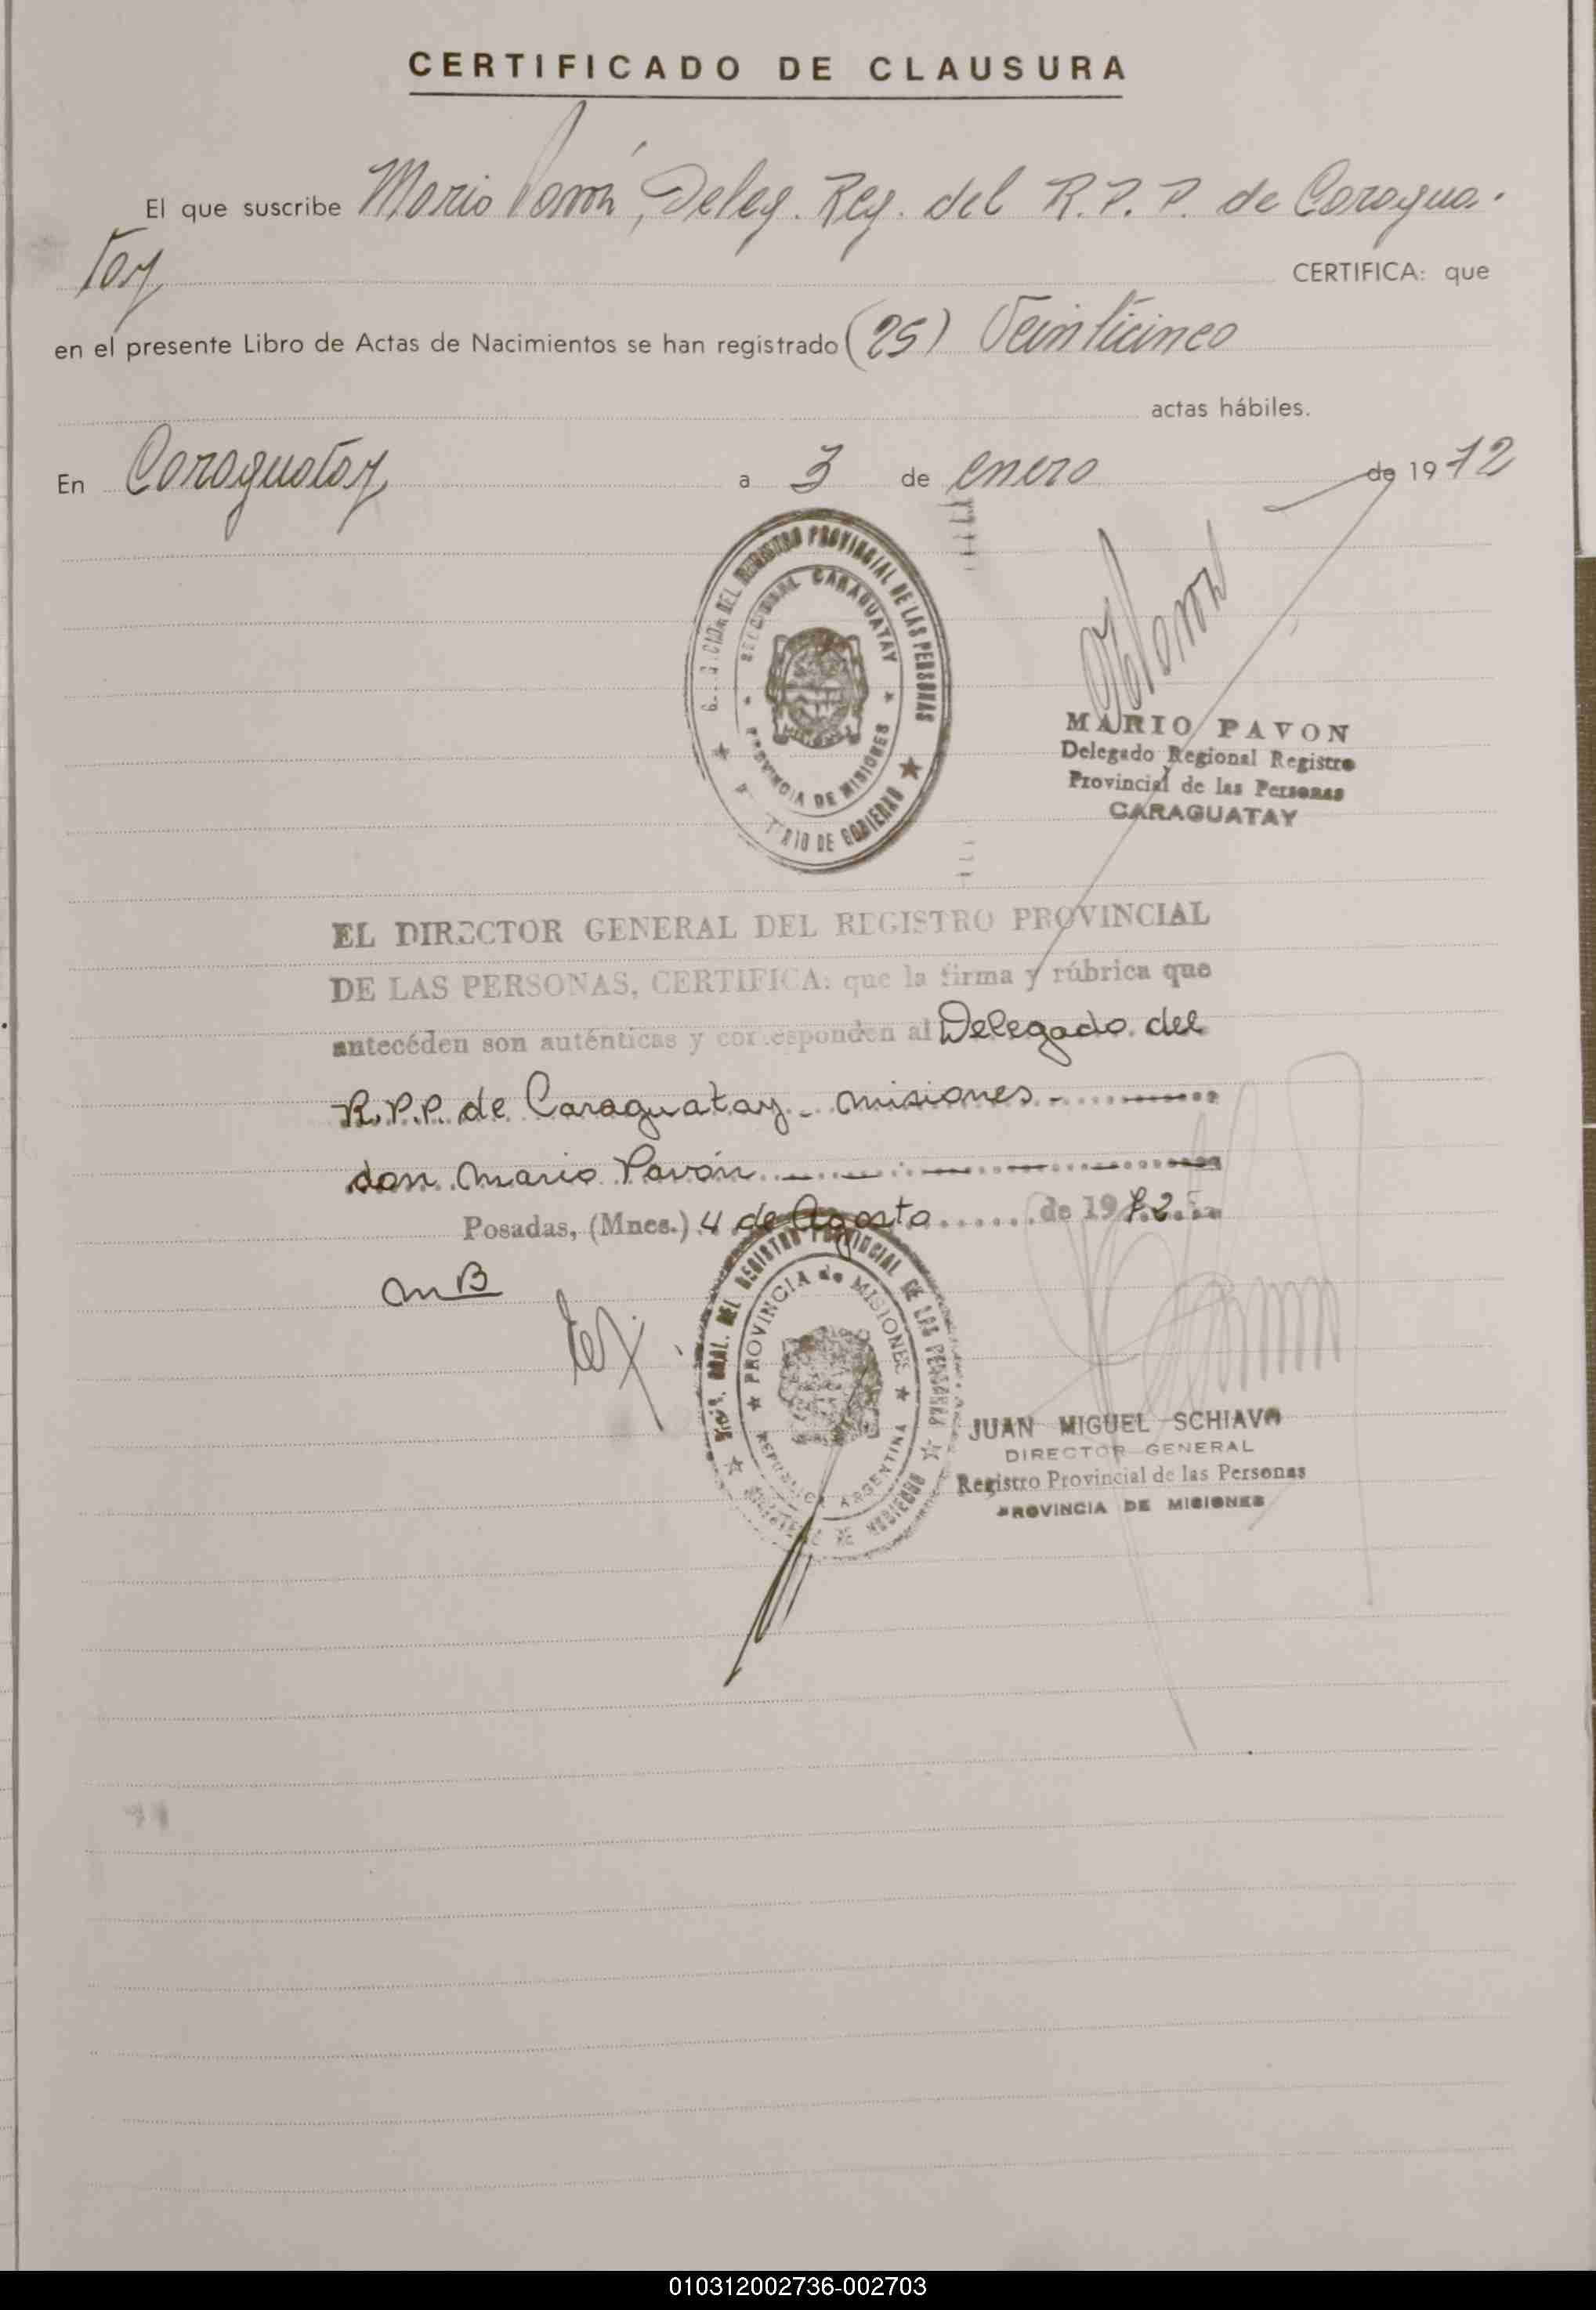 CERTIFICADO DE CLAUSURA
El que suscribe Mario Pavón, Deleg. Reg. del R.P.P. de Caragua-
tay CERTIFICA: que
en el presente Libro de Actas de Nacimientos se han registrado (25) Veinticinco
actas hábiles.
En Caraguatay a 3 de enero de 1972
REGISTRO PROVINCIAL DE LAS PERSONAS
SECCIONAL CARAGUATAY
PROVINCIA DE MISIONES
DE GOBIERNO
MARIO PAVON
Delegado Regional Registro
Provincial de las Personas
CARAGUATAY
EL DIRECTOR GENERAL DEL REGISTRO PROVINCIAL
DE LAS PERSONAS, CERTIFICA: que la firma y rúbrica que
antecéden son auténticas y corresponden al Delegado del
R.P.P. de Caraguatay - misiones -
don Mario Pavón
Posadas, (Mnes.) 4 de Agosto de 1972
mB
GRAL. DEL REGISTRO PROVINCIAL DE LAS PERSONAS
PROVINCIA de MISIONES
REPUBLICA ARGENTINA
GOBIERNO
JUAN MIGUEL SCHIAVO
DIRECTOR GENERAL
Registro Provincial de las Personas
PROVINCIA DE MISIONES
010312002736-002703